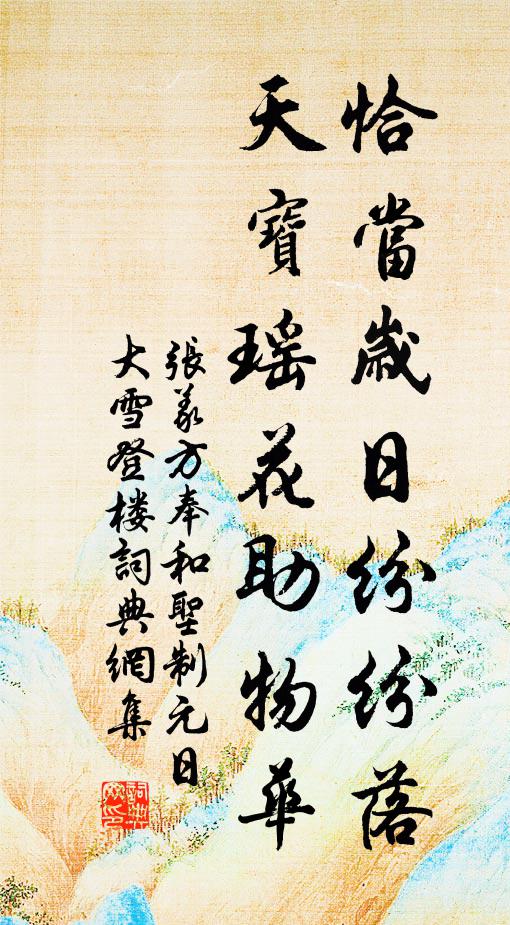 恰當歲日紛紛落
天寶瑤花助物華
張義方奉和聖制元日
大雪登樓詞典網集